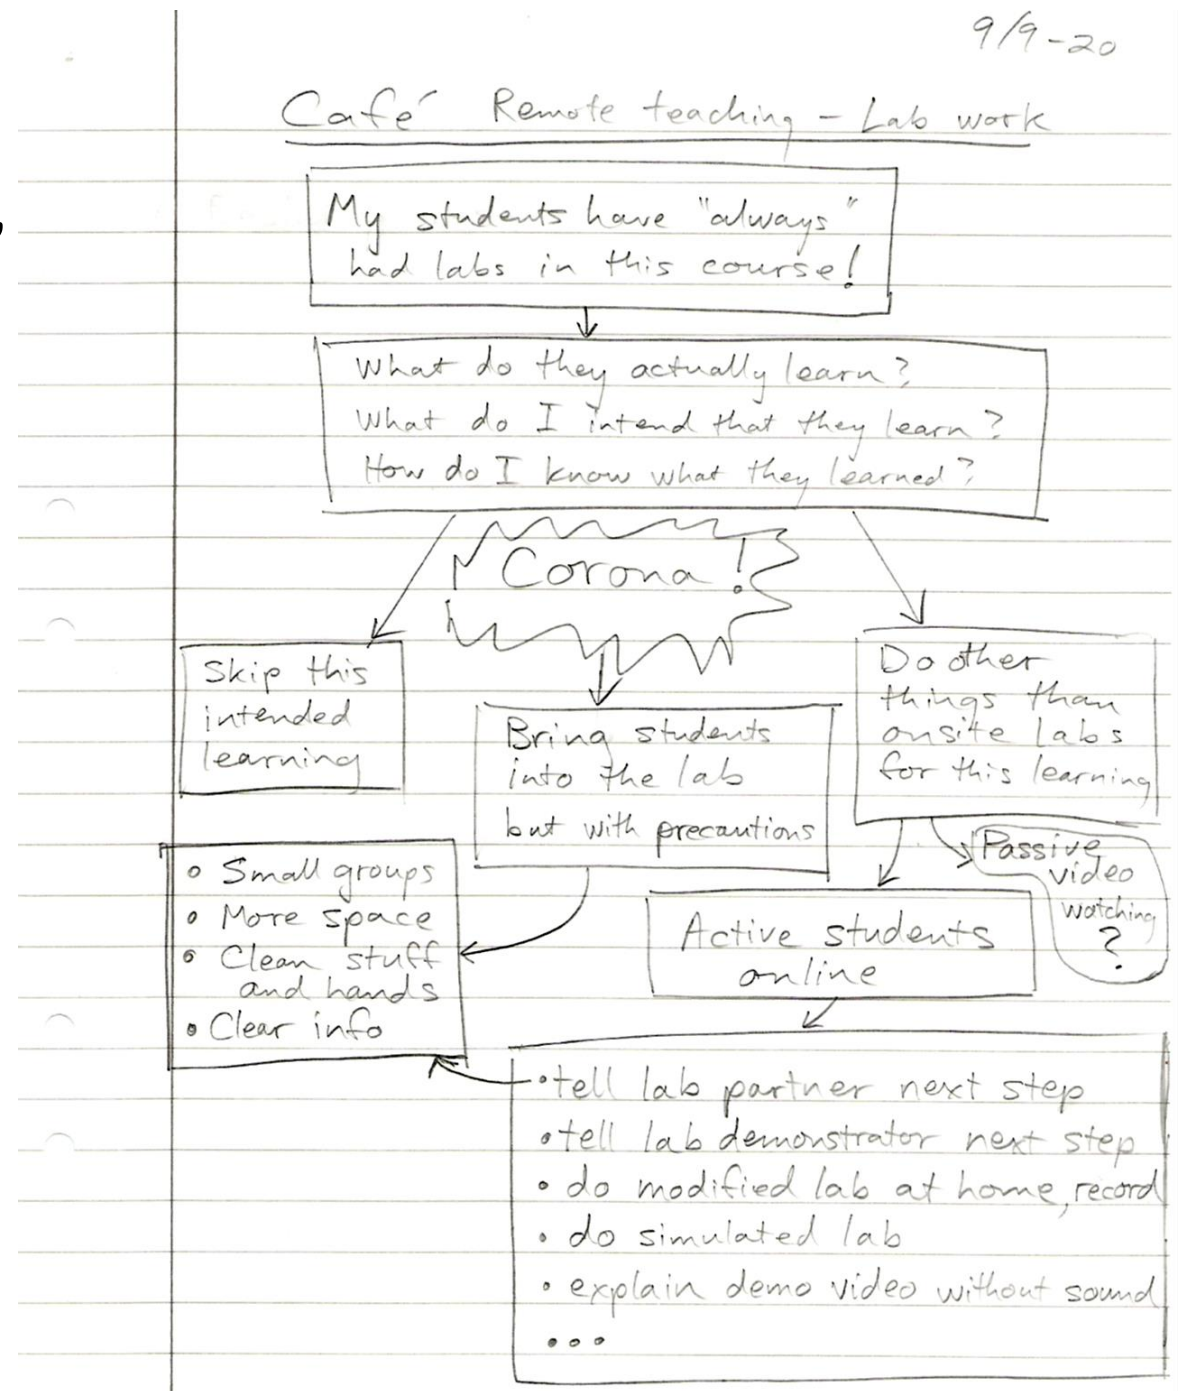 9/9-20
Café Remote teaching – Lab work
My students have "always"
had labs in this course!
What do they actually learn?
What do I intend that they learn?
How do I know what they learned?
Corona!
Skip this
intended
learning
Bring students
into the lab
but with precautions
Do other
things than
onsite labs
for this learning
• Small groups
• More space
• Clean stuff
and hands
• Clear info
Passive
video
watching
?
Active students
online
• tell lab partner next step
• tell lab demonstrator next step
• do modified lab at home, record
• do simulated lab
• explain demo video without sound
•••